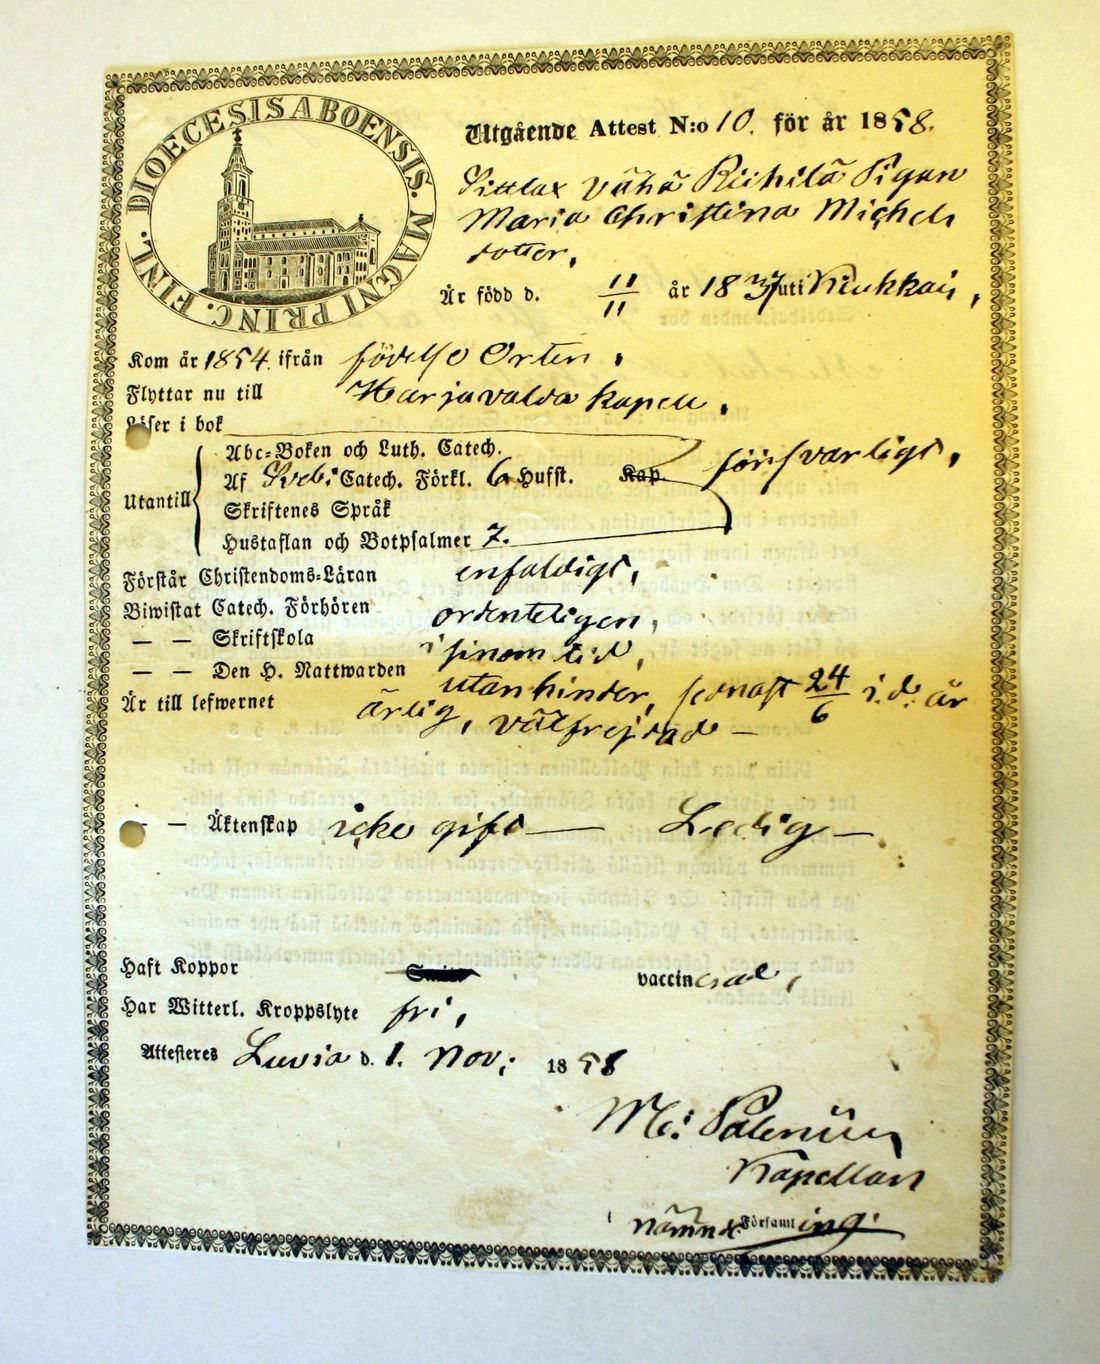 DIOECESIS ABOENSIS. MAGNI PRINC. FINL.
Utgående Attest N:o 10. för år 1858.
Vähä Riihilä Pigan
Maria Christina Michels
dotter,
Är född d. 11/11 år 1837 uti Kiukkais,
Kom år 1854. ifrån födelse Orten,
Flyttar nu till Harjavalda kapell,
Läser i bok
Utantill
Abc-Boken och Luth. Catech.
Af Svebi Catech. Förkl. 6 Hufst. Kap. försvarligt,
Skriftenes Språk
Hustaflan och Botpsalmer 7.
Förstår Christendoms-Läran enfaldigt,
Biwistat Catech. Förhören ordenteligen,
— — Skriftskola i sinom tid,
— — Den H. Nattwarden utan hinder, sednast 24/6 i. d. år
Är till lefwernet ärlig, välfrejdad —
— — Äktenskap icke gift — Ledig —
Haft Koppor vaccinerad,
Har Witterl. Kroppslyte fri,
Attesteres Luvia d. 1. Nov: 1858
Kapellan
nämnd. Församling.